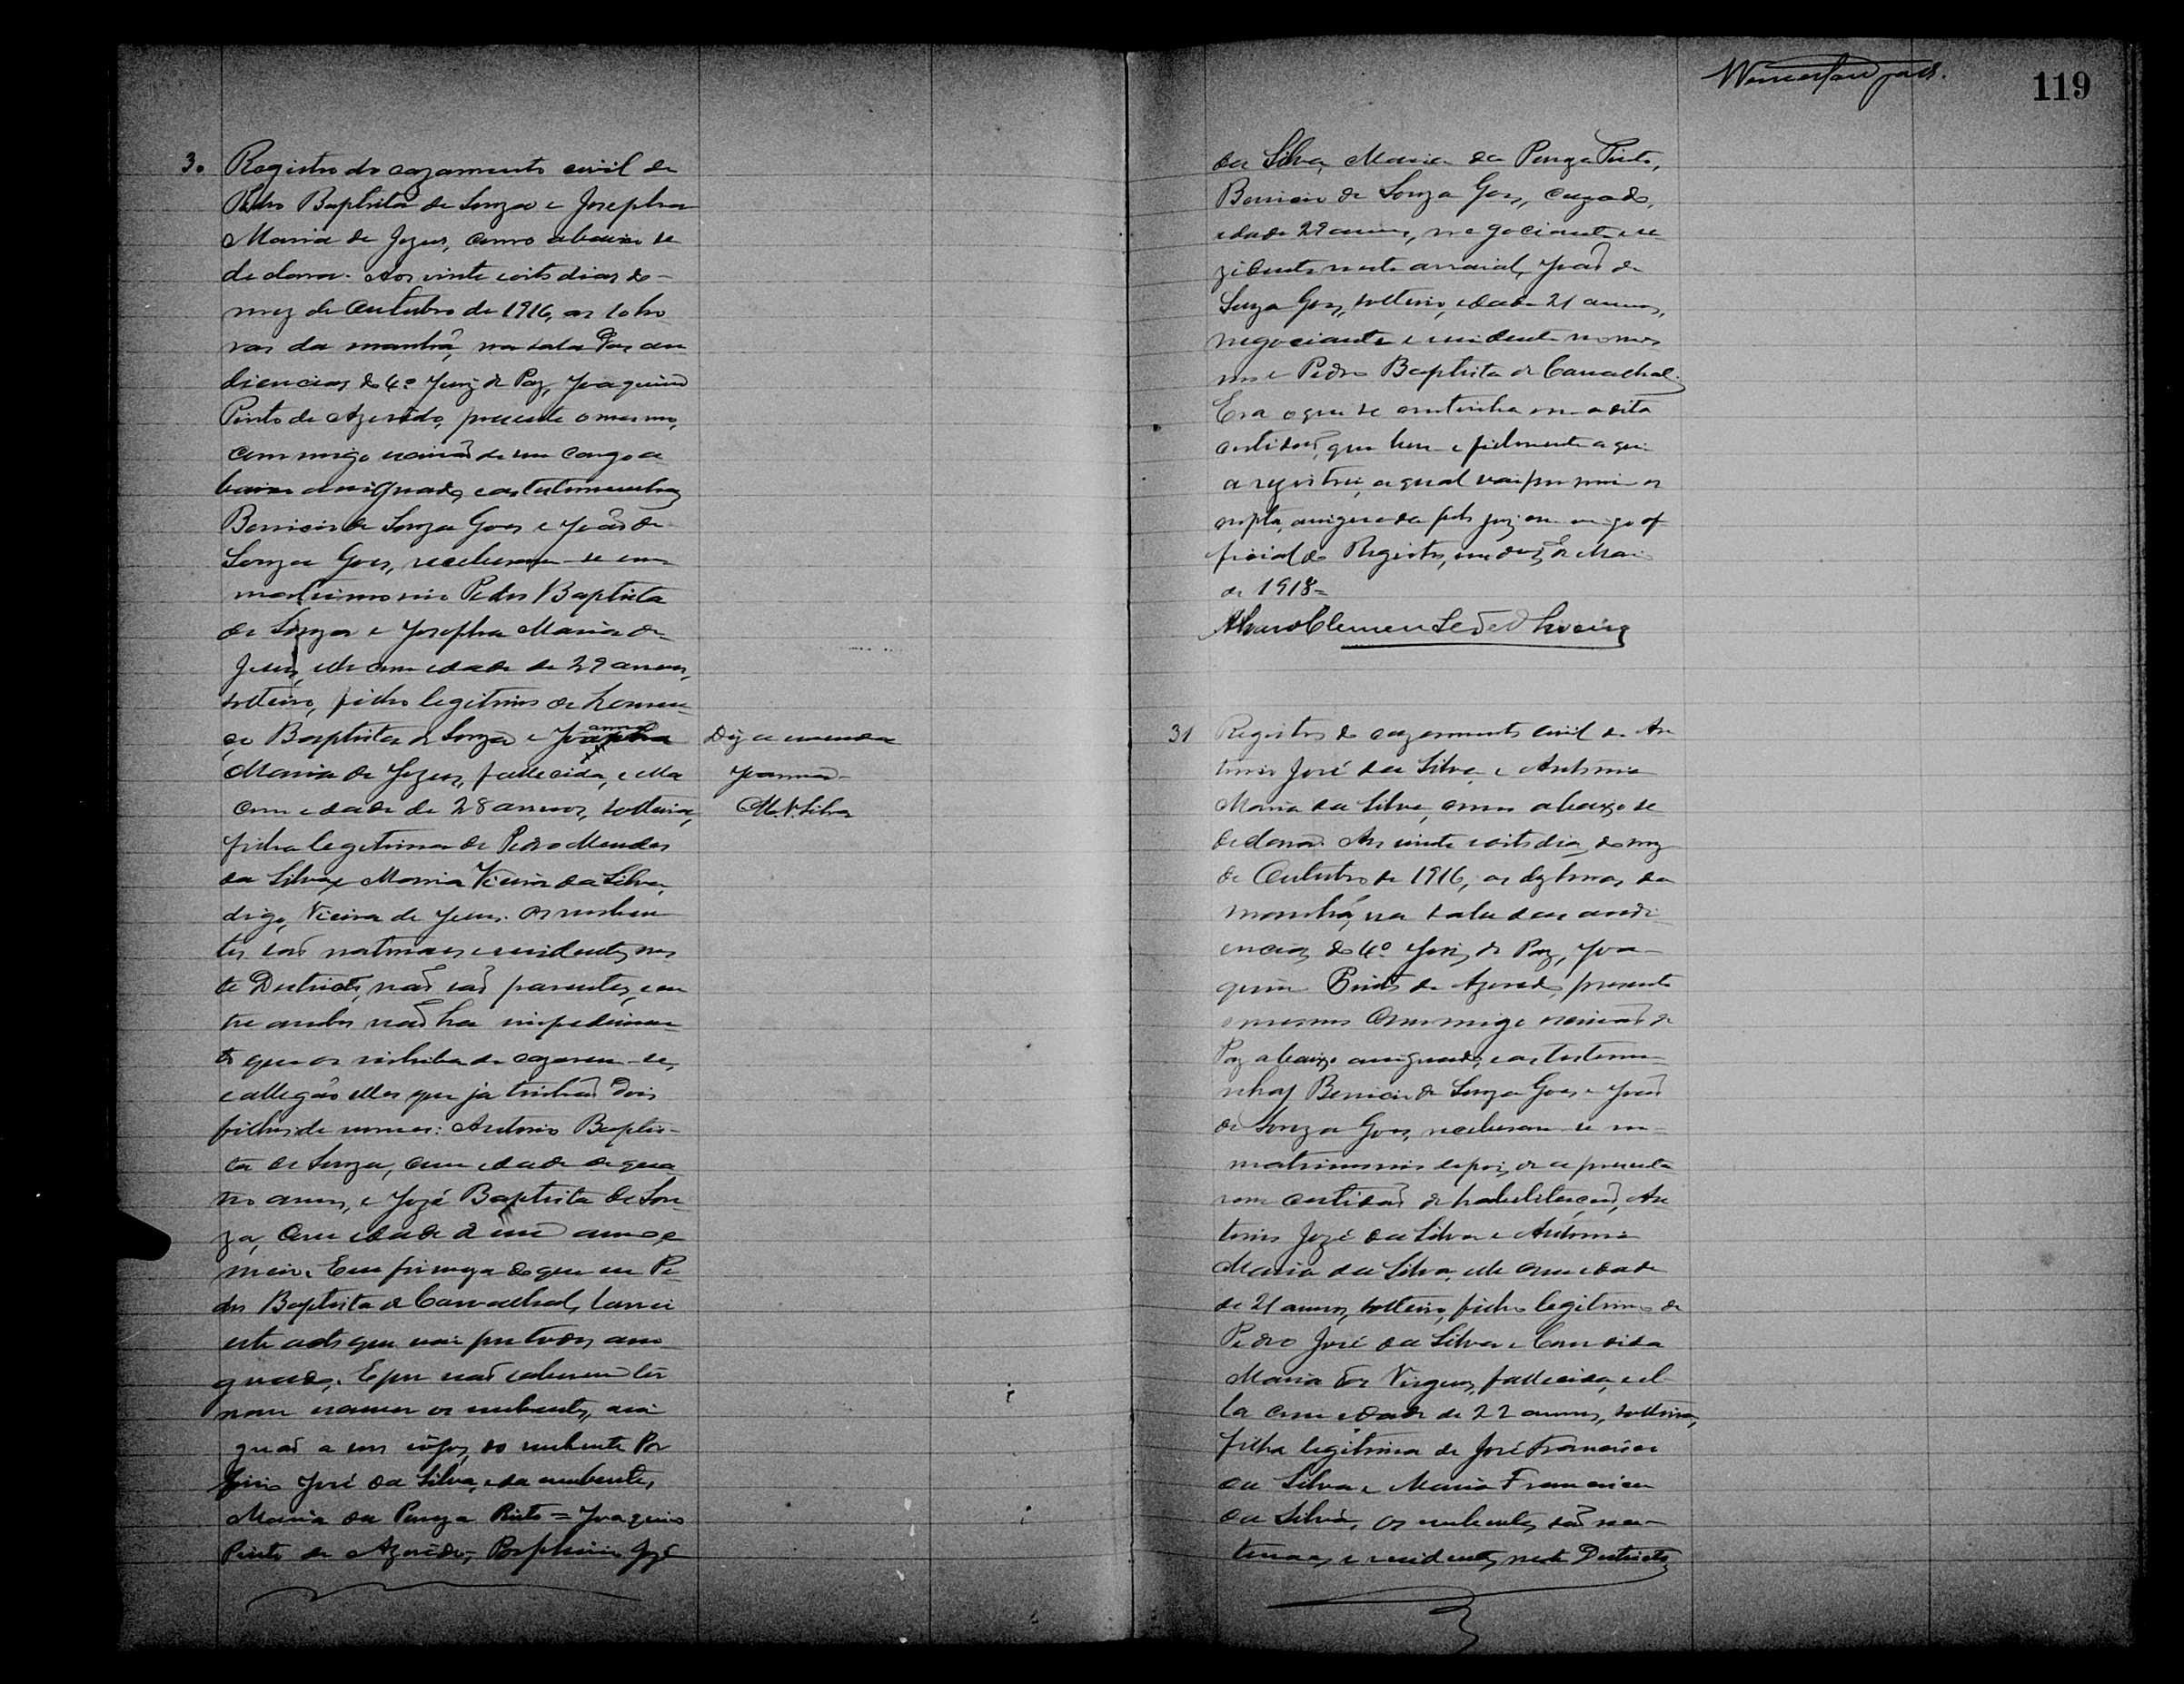 30 Registro do cazamento civil de
Pedro Baptista de Souza e Josepha
Maria de Jezus, como abaixo se
declara. Aos vinte e oito dias do
mez de Outubro de 1916, as 10 ho
ras da manhã, na sala das au
diencias do 4º Juiz de Paz, Joaquim
Pinto de Azevêdo, presente o mesmo,
commigo escrivão de seu cargo a
baixo assignado, e as testemunhas
Bernicio de Souza Goes e João de
Souza Goes, receberam-se em
matrimonio Pedro Baptista
de Souza e Josepha Maria de
Jesus, elle com edade de 29 annos,
solteiro, filho legitimo de
Baptista de Souza e Joanna
Maria de Jezus, fallecida, e ella
com edade de 28 annos, solteira,
filha legitima de Pedro Mendes
da Silva, e Maria Vieira da Silva,
digo, Vieira de Jesus. Os nuben
tes são naturaes e residentes nes
te Districto, não são parentes, e en
tre ambos não ha impedimen
to que os inhiba de cazarem-se,
e allegão elles que ja tinhão dois
filhos de nomes: Antonio Baptis-
ta de Souza, com edade de qua
tro annos, e Jozé Baptista de Sou
za, com edade de um anno e
meio. Em firmeza do que eu Pe
dro Baptista de Carvalhal, lavrei
este acto que vai por todos assi
gnado. E por não saberem ler
nem escrever os nubentes, assi
gnão a seus rôgos, do nubente Por
firio José da Silva, e da nubente,
Maria da Penga Pinto = Joaquim
Pinto de Azevêdo, Porphirio Jozé
Digo a emenda
Joanna
M. V. Silva
119
da Silva, Maria da Penga Pinto,
Bernicio de Souza Goes, cazado,
edade 29 annos, negociante e re
zidente neste arraial, João de
Souza Goes, solteiro, edade 21 annos,
negociante e residente no mes
mo e Pedro Baptista de Carvalhal.
Era o que se continha em a dita
certidão, que bem e fielmente aqui
a registrei, a qual vai por mim es
cripta, assignada pelo juiz commigo of
ficial do Registro, em dez de Maio
de 1918 =
Alvaro Clemente de Oliveira
31 Registro do cazamento civil de An
tonio José da Silva e Antonia
Maria da Silva, como abaixo se
declara. Aos vinte e oito dias do mez
de Outubro de 1916, as dez horas da
manhã, na sala das audi
encias do 4º Juiz de Paz, Joa
quim Pinto de Azevedo, presente
o mesmo commigo escrivão de
Paz abaixo assignado, e as testemu
nhas Bernicio de Souza Goes e João
de Souza Goes, receberam-se em
matrimonio depois de apresenta
rem certidão de habilitação, An
tonio Jozé da Silva e Antonia
Maria da Silva, elle com edade
de 21 annos, solteiro, filho legitimo de
Pedro José da Silva e Candida
Maria das Virgens, fallecida, e el
la com edade de 22 annos, solteira,
filha legitima de José Francisco
da Silva e Maria Francisca
da Silva, os nubentes são na-
turaes e residentes neste Districto